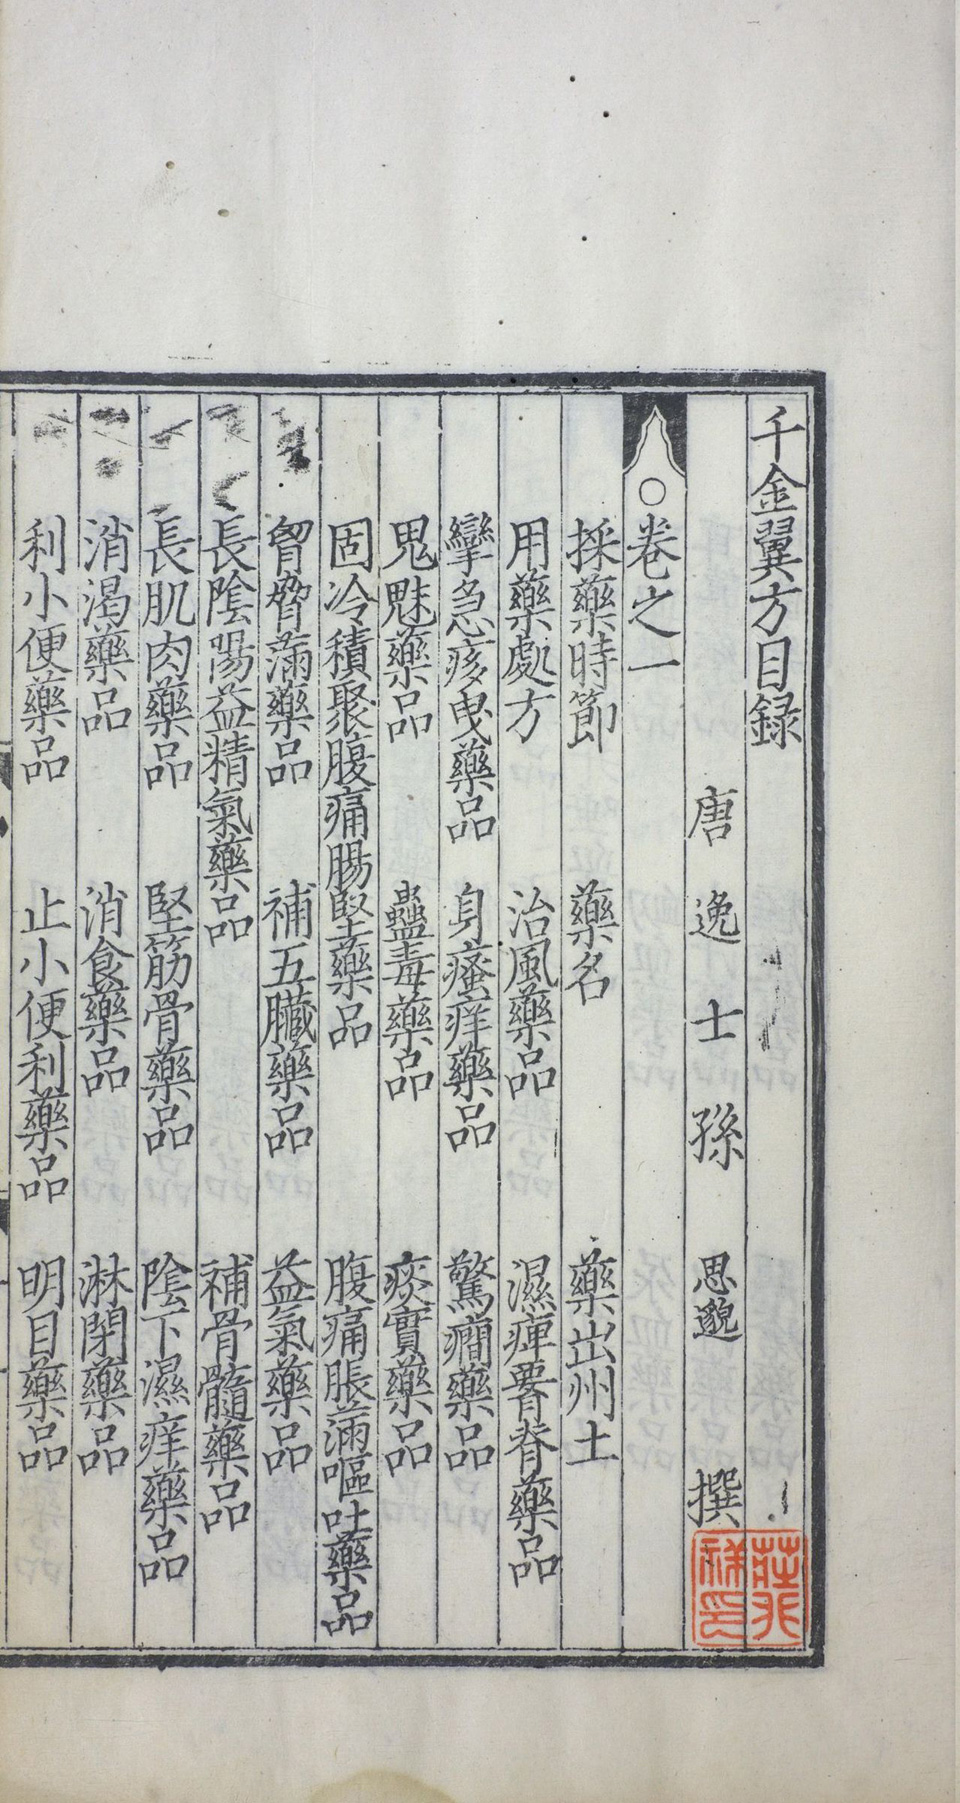 千金翼方目録
唐 逸 士 孫 思邈 撰
○卷之一
採藥時節 藥名 藥出州土
用藥處方 治風藥品 濕痺腰脊藥品
攣急㾋曳藥品 身瘙痒藥品 驚癎藥品
鬼魅藥品 蠱毒藥品 痰實藥品
固冷積聚腹痛腸堅藥品 腹痛脹滿嘔吐藥品
胷脅滿藥品 補五臟藥品 益氣藥品
長陰陽益精氣藥品 補骨髓藥品
長肌肉藥品 堅筋骨藥品 陰下濕痒藥品
消渴藥品 消食藥品 淋閉藥品
利小便藥品 止小便利藥品 明目藥品